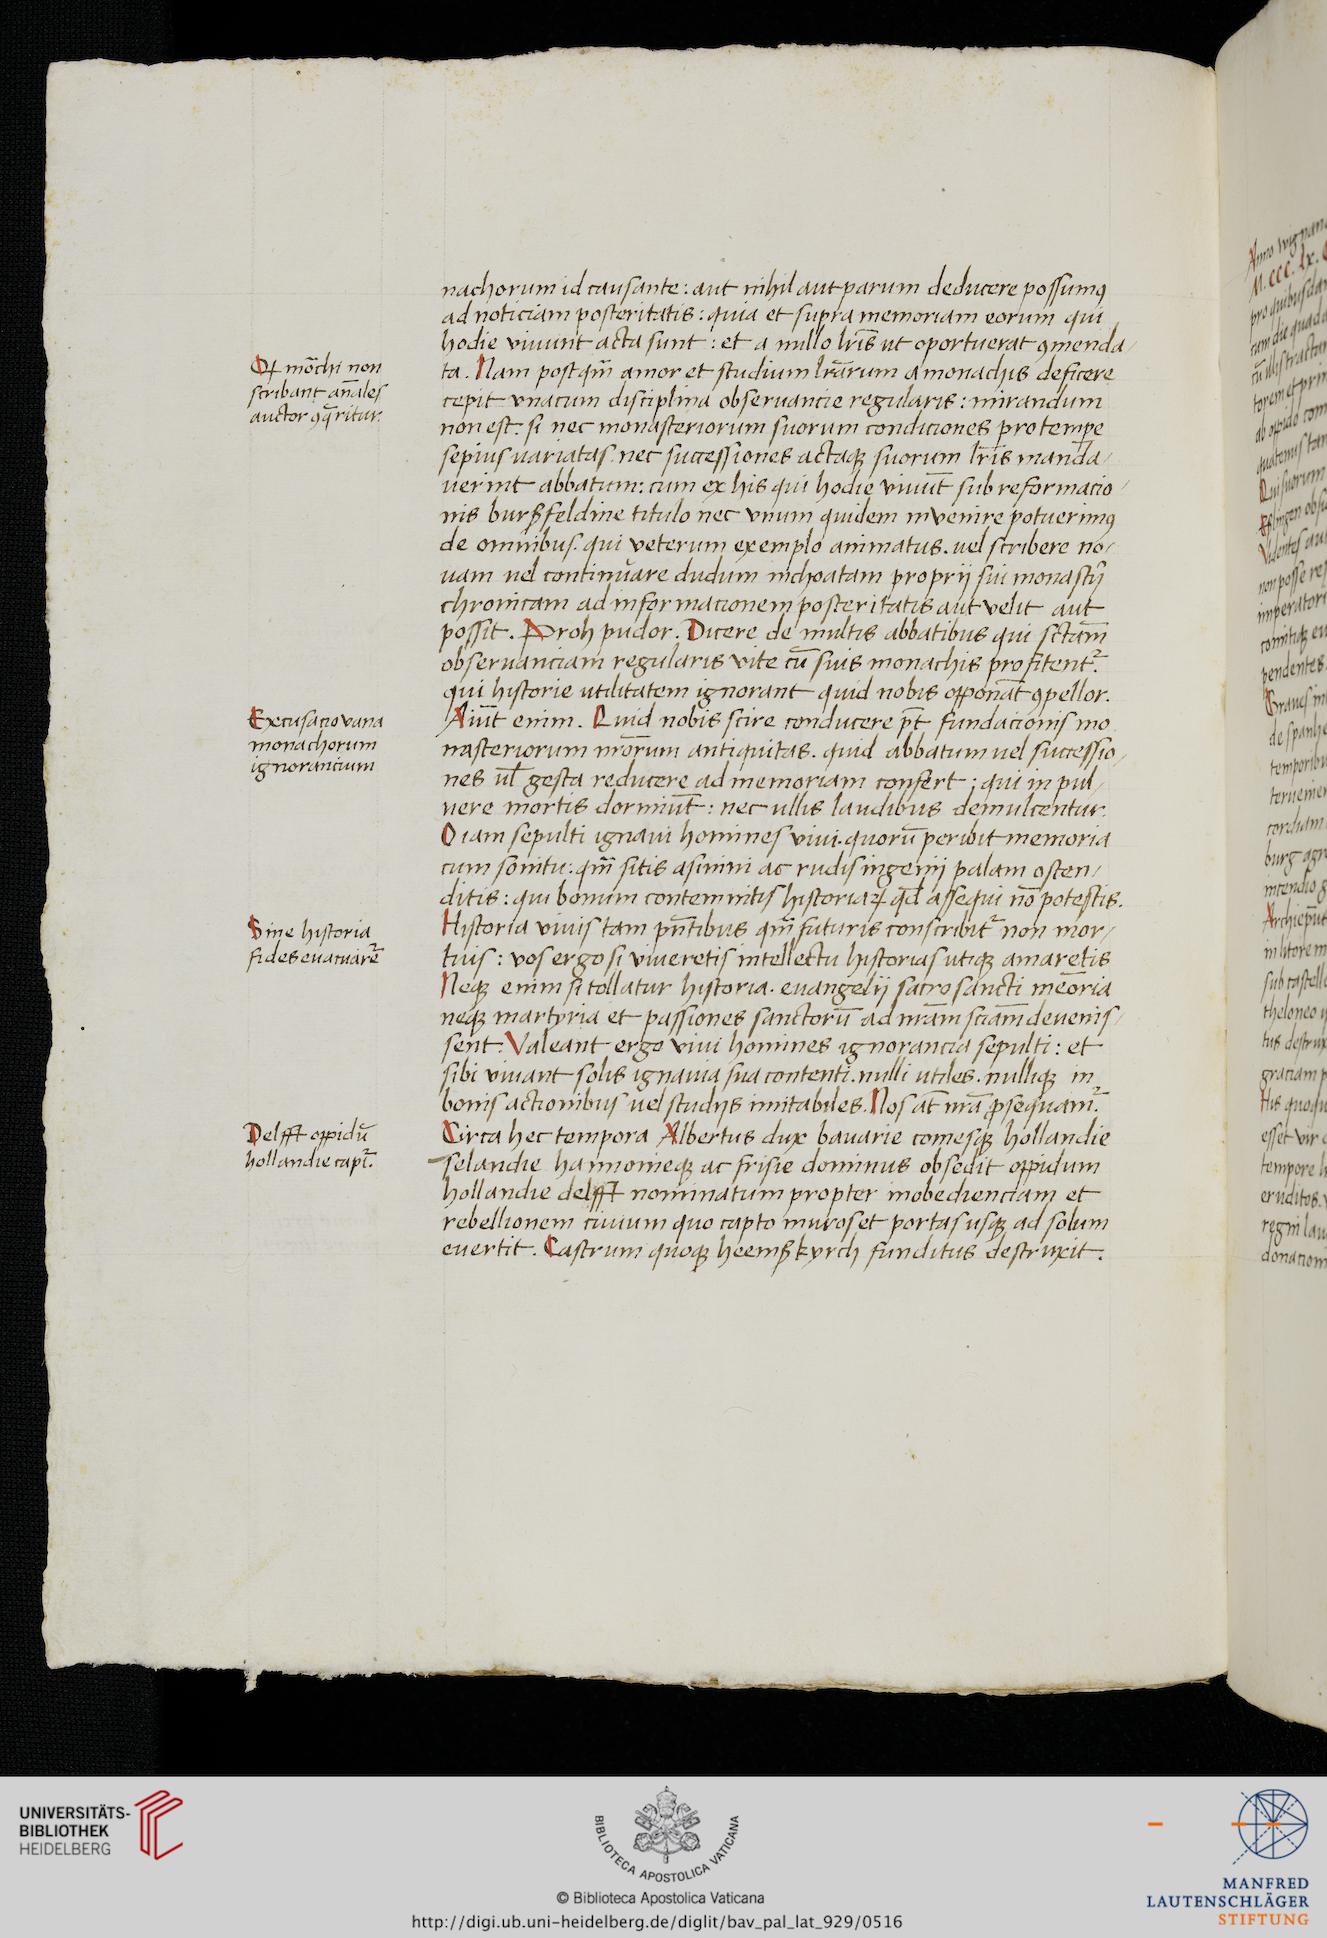 nachorum id causante : aut nihil aut parum deducere possumꝰ
ad noticiam posteritatis : quia et supra memoriam eorum qui
hodie viuunt acta sunt : et a nullo lr̄is ut oportuerat ꝯmenda/
ta . Nam postqm̄ amor et studium lr̄arum a monachis deficere
cepit vnacum disciplina obseruancie regularis : mirandum
non est : si nec monasteriorum suorum condiciones pro tempe
sepius uariatas . nec successiones actaqꝫ suorum lr̄is manda/
uerint abbatum : cum ex his qui hodie viuūt sub reformacio/
nis burßfeldine titulo nec vnum quidem invenire potuerimꝰ
de omnibus . qui veterum exemplo animatus . uel scribere no/
uam uel continuare dudum inchoatam proprij sui monastij
chronicam ad informacionem posteritatis aut velit aut
possit . Proh pudor . Dicere de multis abbatibus qui sctam̄
obseruanciam regularis vite cū suis monachis profitentr̄.
qui historie utilitatem ignorant quid nobis opponāt ꝯpellor.
Aiūt enim . Quid nobis scire conducere pt̄ fundacionis mo
nasteriorum nr̄orum antiquitas . quid abbatum uel successio/
nes ul̄ gesta reducere ad memoriam confert ; qui in pul/
uere mortis dormiūt : nec ullis laudibus demulcentur.
O iam sepulti ignaui homines vivi . quorū peribit memoria
cum sonitu : qm̄ sitis asinini ac rudis ingenij palam osten/
ditis : qui bonum contemnitis historiaꝝ qd̄ assequi nō potestis.
Historia viuis tam pn̄tibus qm̄ futuris conscribitr̄ non mor/
tuis : vos ergo si viueretis intellectu historias utiqꝫ amaretis
Neqꝫ enim si tollatur historia . euangelij sacrosancti mēoria
neqꝫ martyria et passiones sanctorū ad nr̄am sciam̄ devenis/
sent : Valeant ergo vivi homines ignorancia sepulti : et
sibi viuant solis ignauia sua contenti . nulli utiles . nulliqꝫ in
bonis actionibus uel studijs imitabiles . Nos at̄ nr̄a ꝓsequamr̄.
Circa hec tempora Albertus dux bauarie comesqꝫ hollandie
selandie hannonieqꝫ ac frisie dominus obsedit oppidum
hollandie delfft nominatum propter inobedienciam et
rebellionem ciuium quo capto muros et portas usqꝫ ad solum
euertit . Castrum quoqꝫ heemßkyrch funditus destruxit .
Qꝙ mōchi non
scribant an̄ales
auctor ꝯq̄ritur.
Excusacio vana
monachorum
ignorancium
Sine historia
fides euacuarēr
Delfft oppidū
hollandie captr̄.
UNIVERSITÄTS-
BIBLIOTHEK
HEIDELBERG
BIBLIOTECA APOSTOLICA VATICANA
© Biblioteca Apostolica Vaticana
http://digi.ub.uni-heidelberg.de/diglit/bav_pal_lat_929/0516
MANFRED
LAUTENSCHLÄGER
STIFTUNG